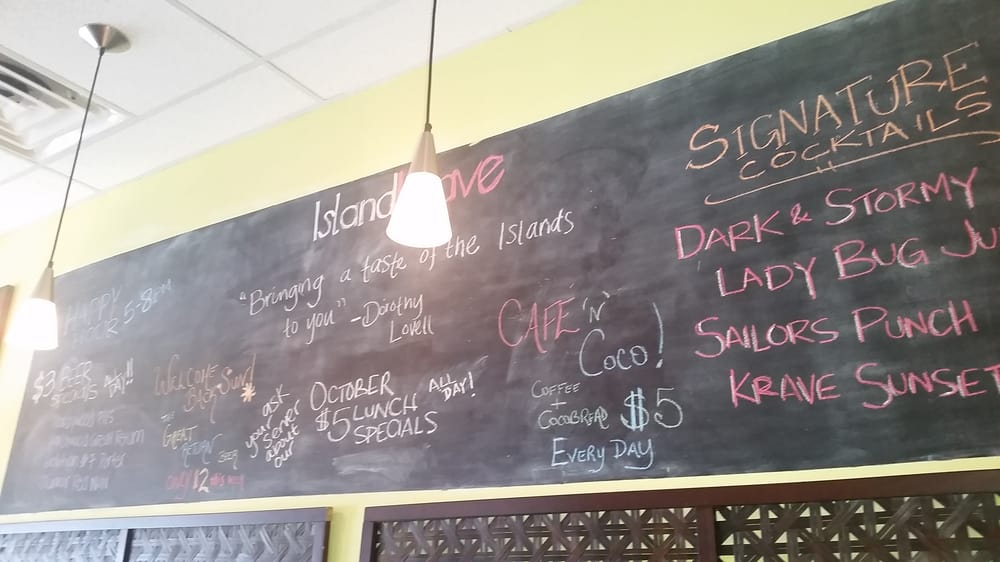 HAPPY
HOUR 5-8PM
$3 BEER
SPECIALS ALL DAY!!
WELCOME
BACK Sun!
THE
GREAT
RETURN BEER
only $2
Island
"Bringing a taste of the Islands
to you" -Dorothy
Lovell
ask
your
server
about
our
OCTOBER
$5 LUNCH
SPECIALS
ALL
DAY!
CAFÉ 'N'
COCO!
COFFEE
+
COCOBREAD $5
EVERY DAY
SIGNATURE
COCKTAILS
DARK & STORMY
LADY BUG JU
SAILORS PUNCH
KRAVE SUNSET